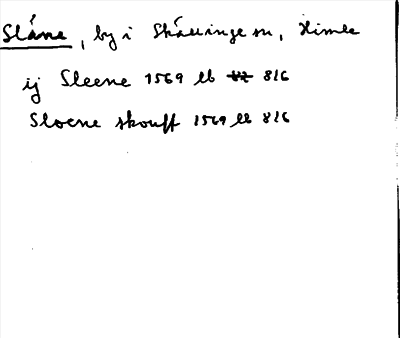 Slåne, by i Skällinge sn, Himle
ij Sleene 1569 lb 816
Sloene skouff 1569 lb 816